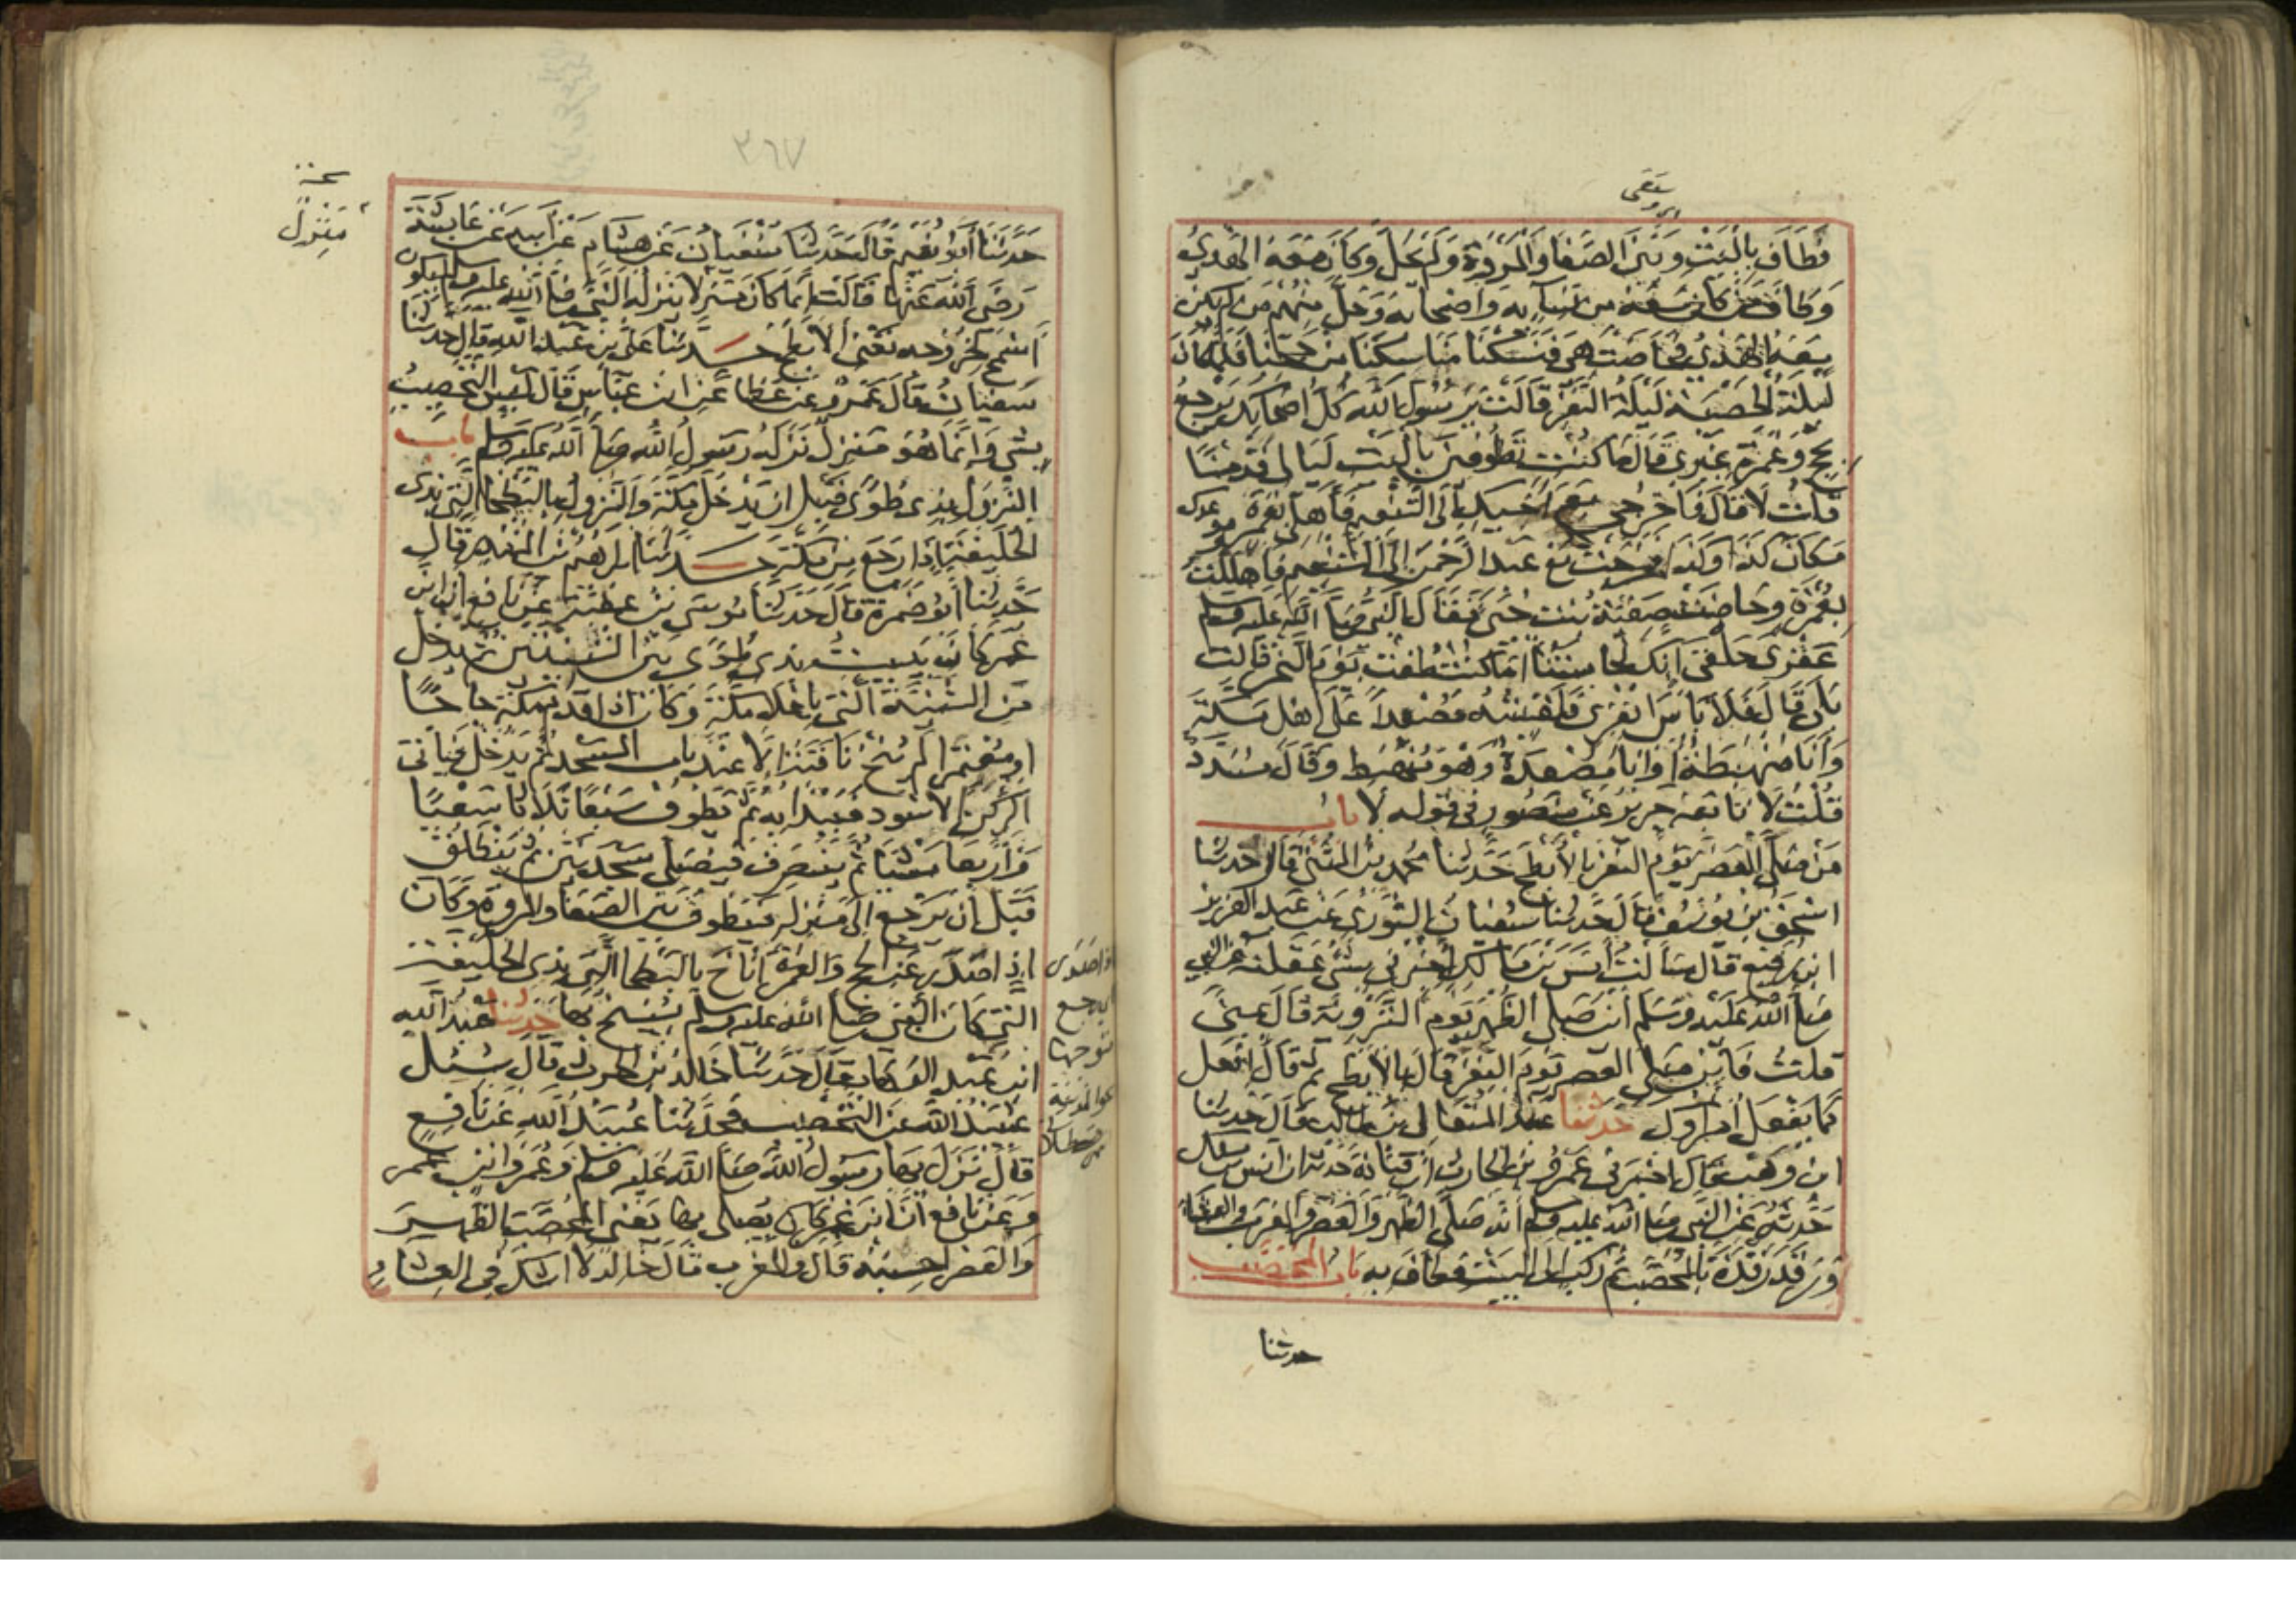 فطاف بالبيت وبين الصفا والمروة ولم يحل وكان معه الهدي
وطاف من كان معه من نسائه واصحابه وحل منهم من لم يكن
معه الهدي فحاضت هي فنسكنا مناسكنا من حجنا فلما كان
ليلة الحصبة ليلة النفر قالت يرسول الله كل اصحابك يرجع
بحج وعمرة غيري قال ما كنت تطوفين بالبيت ليالي قدمنا
قلت لا قال فاخرجي مع اخيك الى التنعيم فاهلي بعمرة وموعدك
مكان كذا وكذا فخرجت مع عبد الرحمن الى التنعيم فاهللت
بعمرة وحاضت صفية بنت حيي فقال النبي صلى الله عليه وسلم
عقرى حلقى انك لحابستنا اما كنت طفت يوم النحر قالت
بلى قال فلا باس انفري فلقيته مصعدا على اهل مكة
وانا منهبطة او انا مصعدة وهو منهبط وقال مسدد
قلت لا تابعه جرير عن منصور في قوله لا باب
من صلى العصر يوم النفر بالابطح حدثنا محمد بن المثنى قال حدثنا
اسحق بن يوسف قال حدثنا سفيان الثوري عن عبد العزيز
ابن رفيع قال سالت انس بن مالك اخبرني بشي عقلته عن النبي
صلى الله عليه وسلم اين صلى الظهر يوم التروية قال بمنى
قلت فاين صلى العصر يوم النفر قال بالابطح ثم قال افعل
كما يفعل امراوك حدثنا عبد المتعالي بن طالب قال حدثنا
ابن وهب قال اخبرني عمرو بن الحارث ان قتادة حدثه ان انس بن مالك
حدثه عن النبي صلى الله عليه وسلم انه صلى الظهر والعصر والمغرب والعشاء
ورقد رقدة بالمحصب ثم ركب الى البيت فطاف به باب المحصب
حدثنا
٣٦٧
نسخة
منزل
حدثنا ابو نعيم قال حدثنا سفيان عن هشام عن ابيه عن عايشة
رضى الله عنها قالت انما كان منزلا ينزله النبي صلى الله عليه وسلم ليكون
اسمح لخروجه تعني الابطح حدثنا علي بن عبد الله قال حدثنا
سفيان قال عمرو عن عطا عن ابن عباس قال ليس التحصيب
بشي وانما هو منزل نزله رسول الله صلى الله عليه وسلم باب
النزول بذي طوى قبل ان يدخل مكة والنزول بالبطحا التي بذي
الحليفة اذا رجع من مكة حدثنا ابرهيم بن المنذر قال
حدثنا ابو ضمرة قال حدثنا موسى بن عقبة عن نافع ان ابن
عمر كان يبيت بذي طوى بين الثنيتين ثم يدخل
من الثنية التي باعلا مكة وكان اذا قدم مكة حاجا
او معتمرا لم ينخ ناقته الا عند باب المسجد ثم يدخل فياتي
الركن الاسود فيبدا به ثم يطوف سبعا ثلاثا سعيا
واربعا مشيا ثم ينصرف فيصلي سجدتين ثم ينطلق
قبل ان يرجع الى منزله فيطوف بين الصفا والمروة وكان
اذا صدر عن الحج والعمرة اناخ بالبطحا التي بذي الحليفة
التي كان النبي صلى الله عليه وسلم ينيخ بها حدثنا عبد الله
ابن عبد الوهاب قال حدثنا خالد بن الحرث قال سئل
عبيد الله عن التحصيب فحدثنا عبيد الله عن نافع
قال نزل بها رسول الله صلى الله عليه وسلم وعمر وابن عمر
وعن نافع ان ابن عمر كان يصلي بها يعني المحصب الظهر
والعصر احسبه قال والمغرب قال خالد لا اشك في العشا